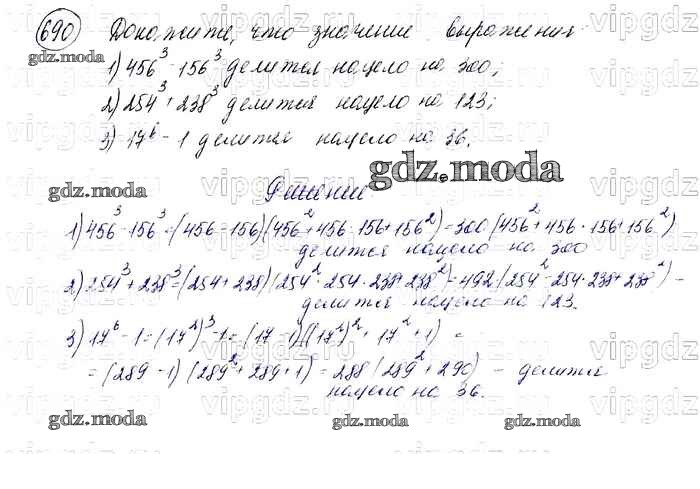 690 Докажите, что значение выражения
1) 456³ - 156³ делится нацело на 300;
2) 254³ + 238³ делится нацело на 123;
3) 17⁶ - 1 делится нацело на 36.
gdz.moda
gdz.moda
gdz.moda
Решение
1) 456³ - 156³ = (456 - 156)(456² + 456 · 156 + 156²) = 300 (456² + 456 · 156 + 156²)
делится нацело на 300
2) 254³ + 238³ = (254 + 238)(254² - 254 · 238 + 238²) = 492 (254² - 254 · 238 + 238²) -
делится нацело на 123.
3) 17⁶ - 1 = (17²)³ - 1 = (17 - 1)((17²)² + 17² + 1) =
= (289 - 1) (289² + 289 + 1) = 288 (289² + 290) - делится
нацело на 36.
gdz.moda
gdz.moda
gdz.moda